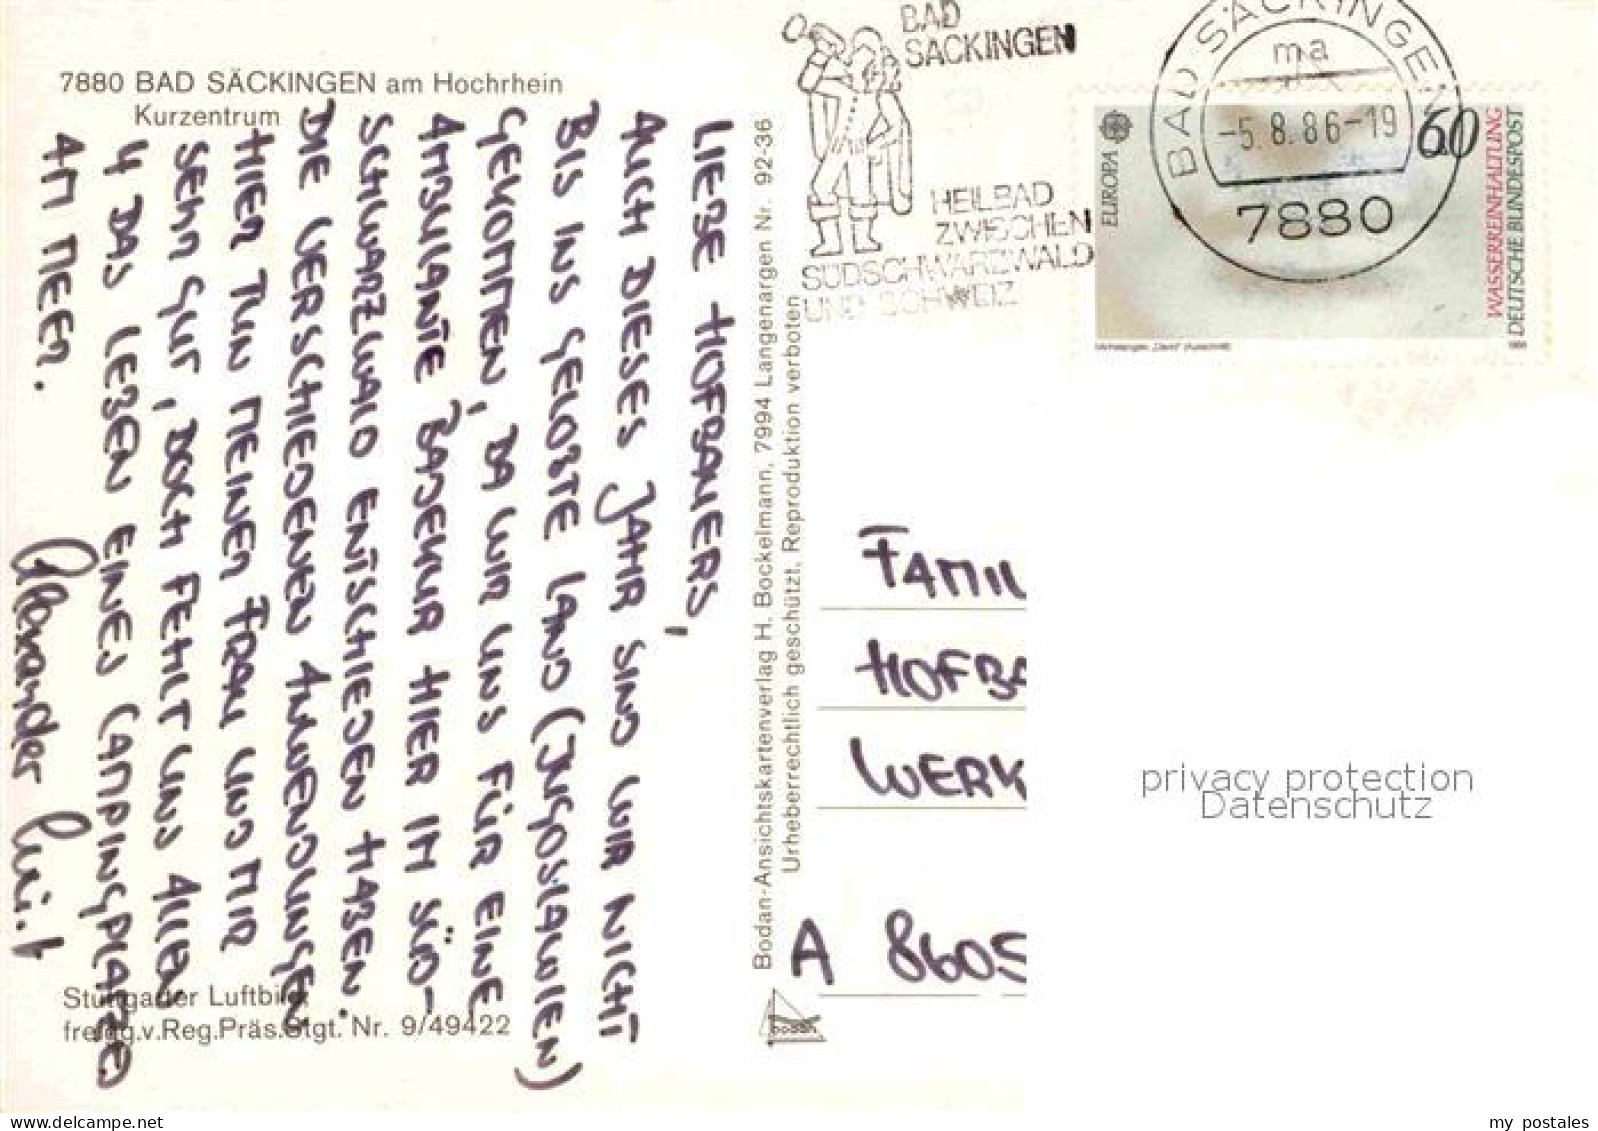 7880 BAD SÄCKINGEN am Hochrhein
Kurzentrum
LIEBE HOFBAUERS,
AUCH DIESES JAHR SIND WIR NICHT
BIS INS GELOBTE LAND (JUGOSLAWIEN)
GEKOMMEN, DA WIR UNS FÜR EINE
AMBULANTE BADEKUR HIER IM SÜD-
SCHWARZWALD ENTSCHIEDEN HABEN.
DIE VERSCHIEDENEN ANWENDUNGEN
HIER TUN MEINER FRAU UND MIR
SEHR GUT, DOCH FEHLT UNS ALLEN
4 DAS LEBEN EINES CAMPINGPLATZES
AM MEER.
Alexander
Stuttgarter Luftbild
freigg.v.Reg.Präs.Stgt. Nr. 9/49422
Bodan-Ansichtskartenverlag H. Bockelmann, 7994 Langenargen Nr. 92-36
Urheberrechtlich geschützt, Reproduktion verboten
bodan
BAD
SÄCKINGEN
HEILBAD
ZWISCHEN
SÜDSCHWARZWALD
UND SCHWEIZ
BAD SÄCKINGEN
ma
-5.8.86-19
7880
EUROPA
60
WASSERREINHALTUNG
DEUTSCHE BUNDESPOST
Michelangelo, „David" (Ausschnitt)
1986
FAMIL
HOFBA
WERK
A 8605
privacy protection
Datenschutz
my postales